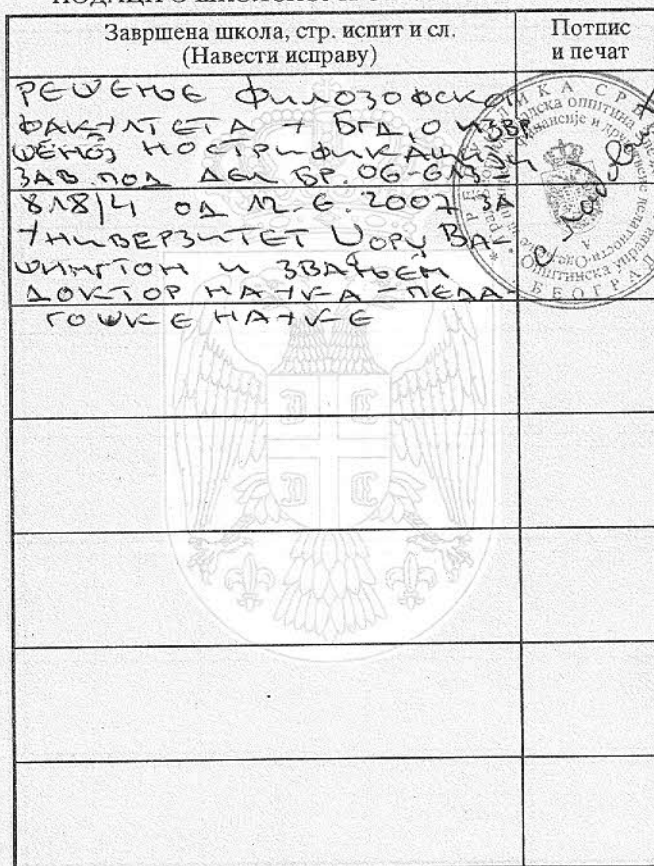 Завршена школа, стр. испит и сл.
(Навести исправу)
Потпис
и печат
РЕШЕЊЕ ФИЛОЗОФСКОГ
ФАКУЛТЕТА У БГД, О ИЗВР
ШЕНОЈ НОСТРИФИКАЦИЈИ
ЗАВ. ПОД ДЕЛ БР. 06-613-
818/4 ОД 12.6.2007 ЗА
УНИВЕРЗИТЕТ ЏОРЏ ВА-
ШИНГТОН И ЗВАЊЕМ
ДОКТОР НАУКА - ПЕДА
ГОШКЕ НАУКЕ
РЕПУБЛИКА
БЕОГРАД